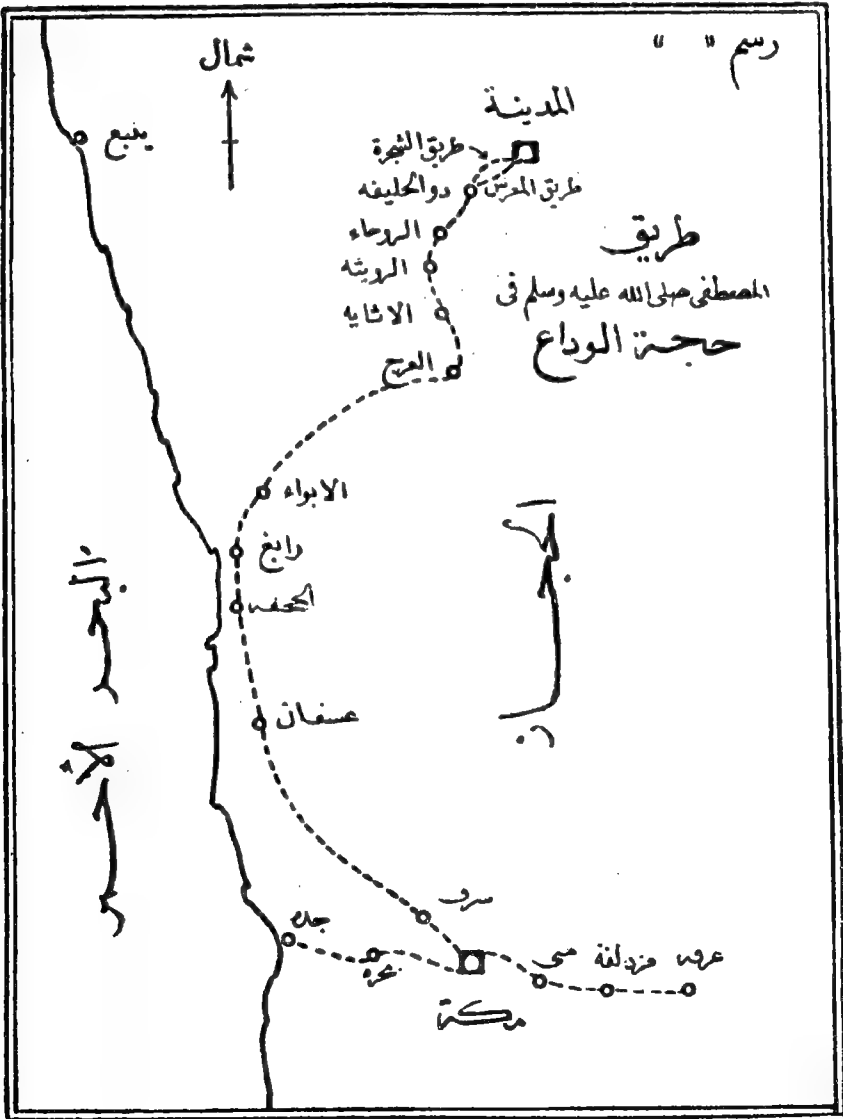 رسم " "
شمال
المدينة
ينبع
طريق الشجرة
طريق المعرس
ذوالحليفه
الروحاء
الرويثه
الاثايه
العرج
طريق
المصطفى صلى الله عليه وسلم فى
حجة الوداع
الابواء
رابغ
الجحفه
عسفان
البحر الأحمر
سرف
جده
بحره
مكة
منى
مزدلفة
عرفه